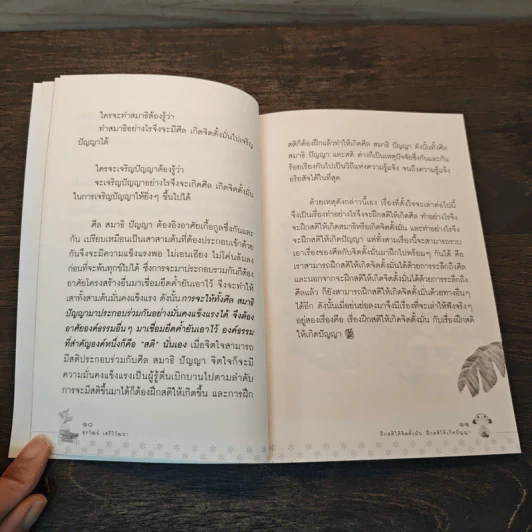 ใครจะทำสมาธิต้องรู้ว่า
ทำสมาธิอย่างไรจึงจะมีศีล เกิดจิตตั้งมั่นไปเจริญ
ปัญญาได้
ใครจะเจริญปัญญาต้องรู้ว่า
จะเจริญปัญญาอย่างไรจึงจะเกิดศีล เกิดจิตตั้งมั่น
ในการเจริญปัญญาให้ยิ่งๆ ขึ้นไปได้
ศีล สมาธิ ปัญญา ต้องอิงอาศัยเกื้อกูลซึ่งกันและ
กัน เปรียบเหมือนเป็นเสาสามต้นที่ต้องประกอบเข้าด้วย
กันจึงจะมีความแข็งแรงพอ ไม่เอนเอียง ไม่โค่นล้มลง
ก่อนที่จะพ้นทุกข์ไปได้ ซึ่งการจะมาประกอบรวมกันก็ต้อง
อาศัยโครงสร้างอื่นมาเชื่อมยึดค้ำยันเอาไว้ จึงจะทำให้
เสาทั้งสามต้นมั่นคงแข็งแรง ดังนั้น การจะให้ทั้งศีล สมาธิ
ปัญญามาประกอบร่วมกันอย่างมั่นคงแข็งแรงได้ จึงต้อง
อาศัยองค์ธรรมอื่นๆ มาเชื่อมยึดค้ำยันเอาไว้ องค์ธรรม
ที่สำคัญองค์หนึ่งก็คือ "สติ" นั่นเอง เมื่อจิตใจสามารถ
มีสติประกอบร่วมกับศีล สมาธิ ปัญญา จิตใจก็จะมี
ความมั่นคงแข็งแรงเป็นผู้รู้ตื่นเบิกบานไปตามลำดับ
การจะมีสติขึ้นมาได้ก็ต้องฝึกสติให้เกิดขึ้น และการฝึก
๑๐
สุรวัฒน์ เสรีวิวัฒนา
สติก็ต้องฝึกแล้วทำให้เกิดศีล สมาธิ ปัญญา ดังนั้นทั้งศีล
สมาธิ ปัญญา และสติ ต่างก็เป็นเหตุปัจจัยซึ่งกันและกัน
ร้อยเรียงกันไปเป็นวิถีแห่งความรู้แจ้ง จนถึงความรู้แจ้ง
อริยสัจได้ในที่สุด
ด้วยเหตุดังกล่าวนี้เอง เรื่องที่ตั้งใจจะเล่าต่อไปนี้
จึงเป็นเรื่องทำอย่างไรจึงจะฝึกสติให้เกิดศีล ทำอย่างไรจึง
จะฝึกสติให้เกิดสมาธิหรือเกิดจิตตั้งมั่น และทำอย่างไรจึง
จะฝึกสติให้เกิดปัญญา แต่ทั้งสามเรื่องนี้จะสามารถรวบ
เอาเรื่องของศีลกับจิตตั้งมั่นมาฝึกไปพร้อมๆ กันได้ คือ
เราสามารถฝึกสติให้เกิดจิตตั้งมั่นได้ด้วยการระลึกถึงศีล
และนอกจากจะฝึกสติให้เกิดจิตตั้งมั่นได้ด้วยการระลึกถึง
ศีลแล้ว ก็ยังสามารถฝึกสติให้เกิดจิตตั้งมั่นได้ด้วยทางอื่นๆ
ได้อีก ดังนั้นเมื่อย่นย่อลงมาจึงมีเรื่องที่จะเล่าให้ฟังจริงๆ
อยู่สองเรื่องคือ เรื่องฝึกสติให้เกิดจิตตั้งมั่น กับเรื่องฝึกสติ
ให้เกิดปัญญา
๑๑
ฝึกสติให้จิตตั้งมั่น ฝึกสติให้เกิดปัญญา